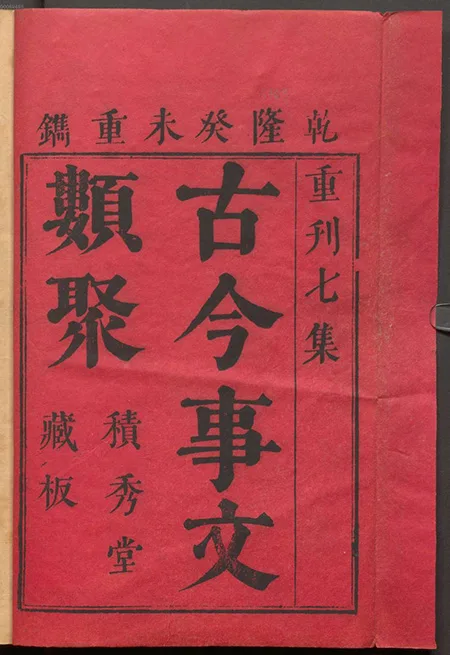 乾隆癸未重鐫
重刊七集
古今事文
類聚
積秀堂
藏板